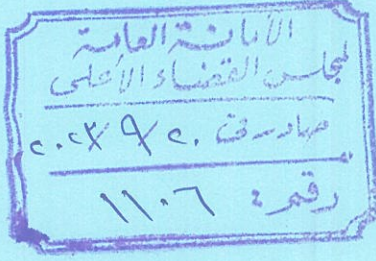 الأمانة العامة
لمجلس القضاء الأعلى
صادر في ٢٠/٩/٢٠٢٣
رقم: ١١٠٦